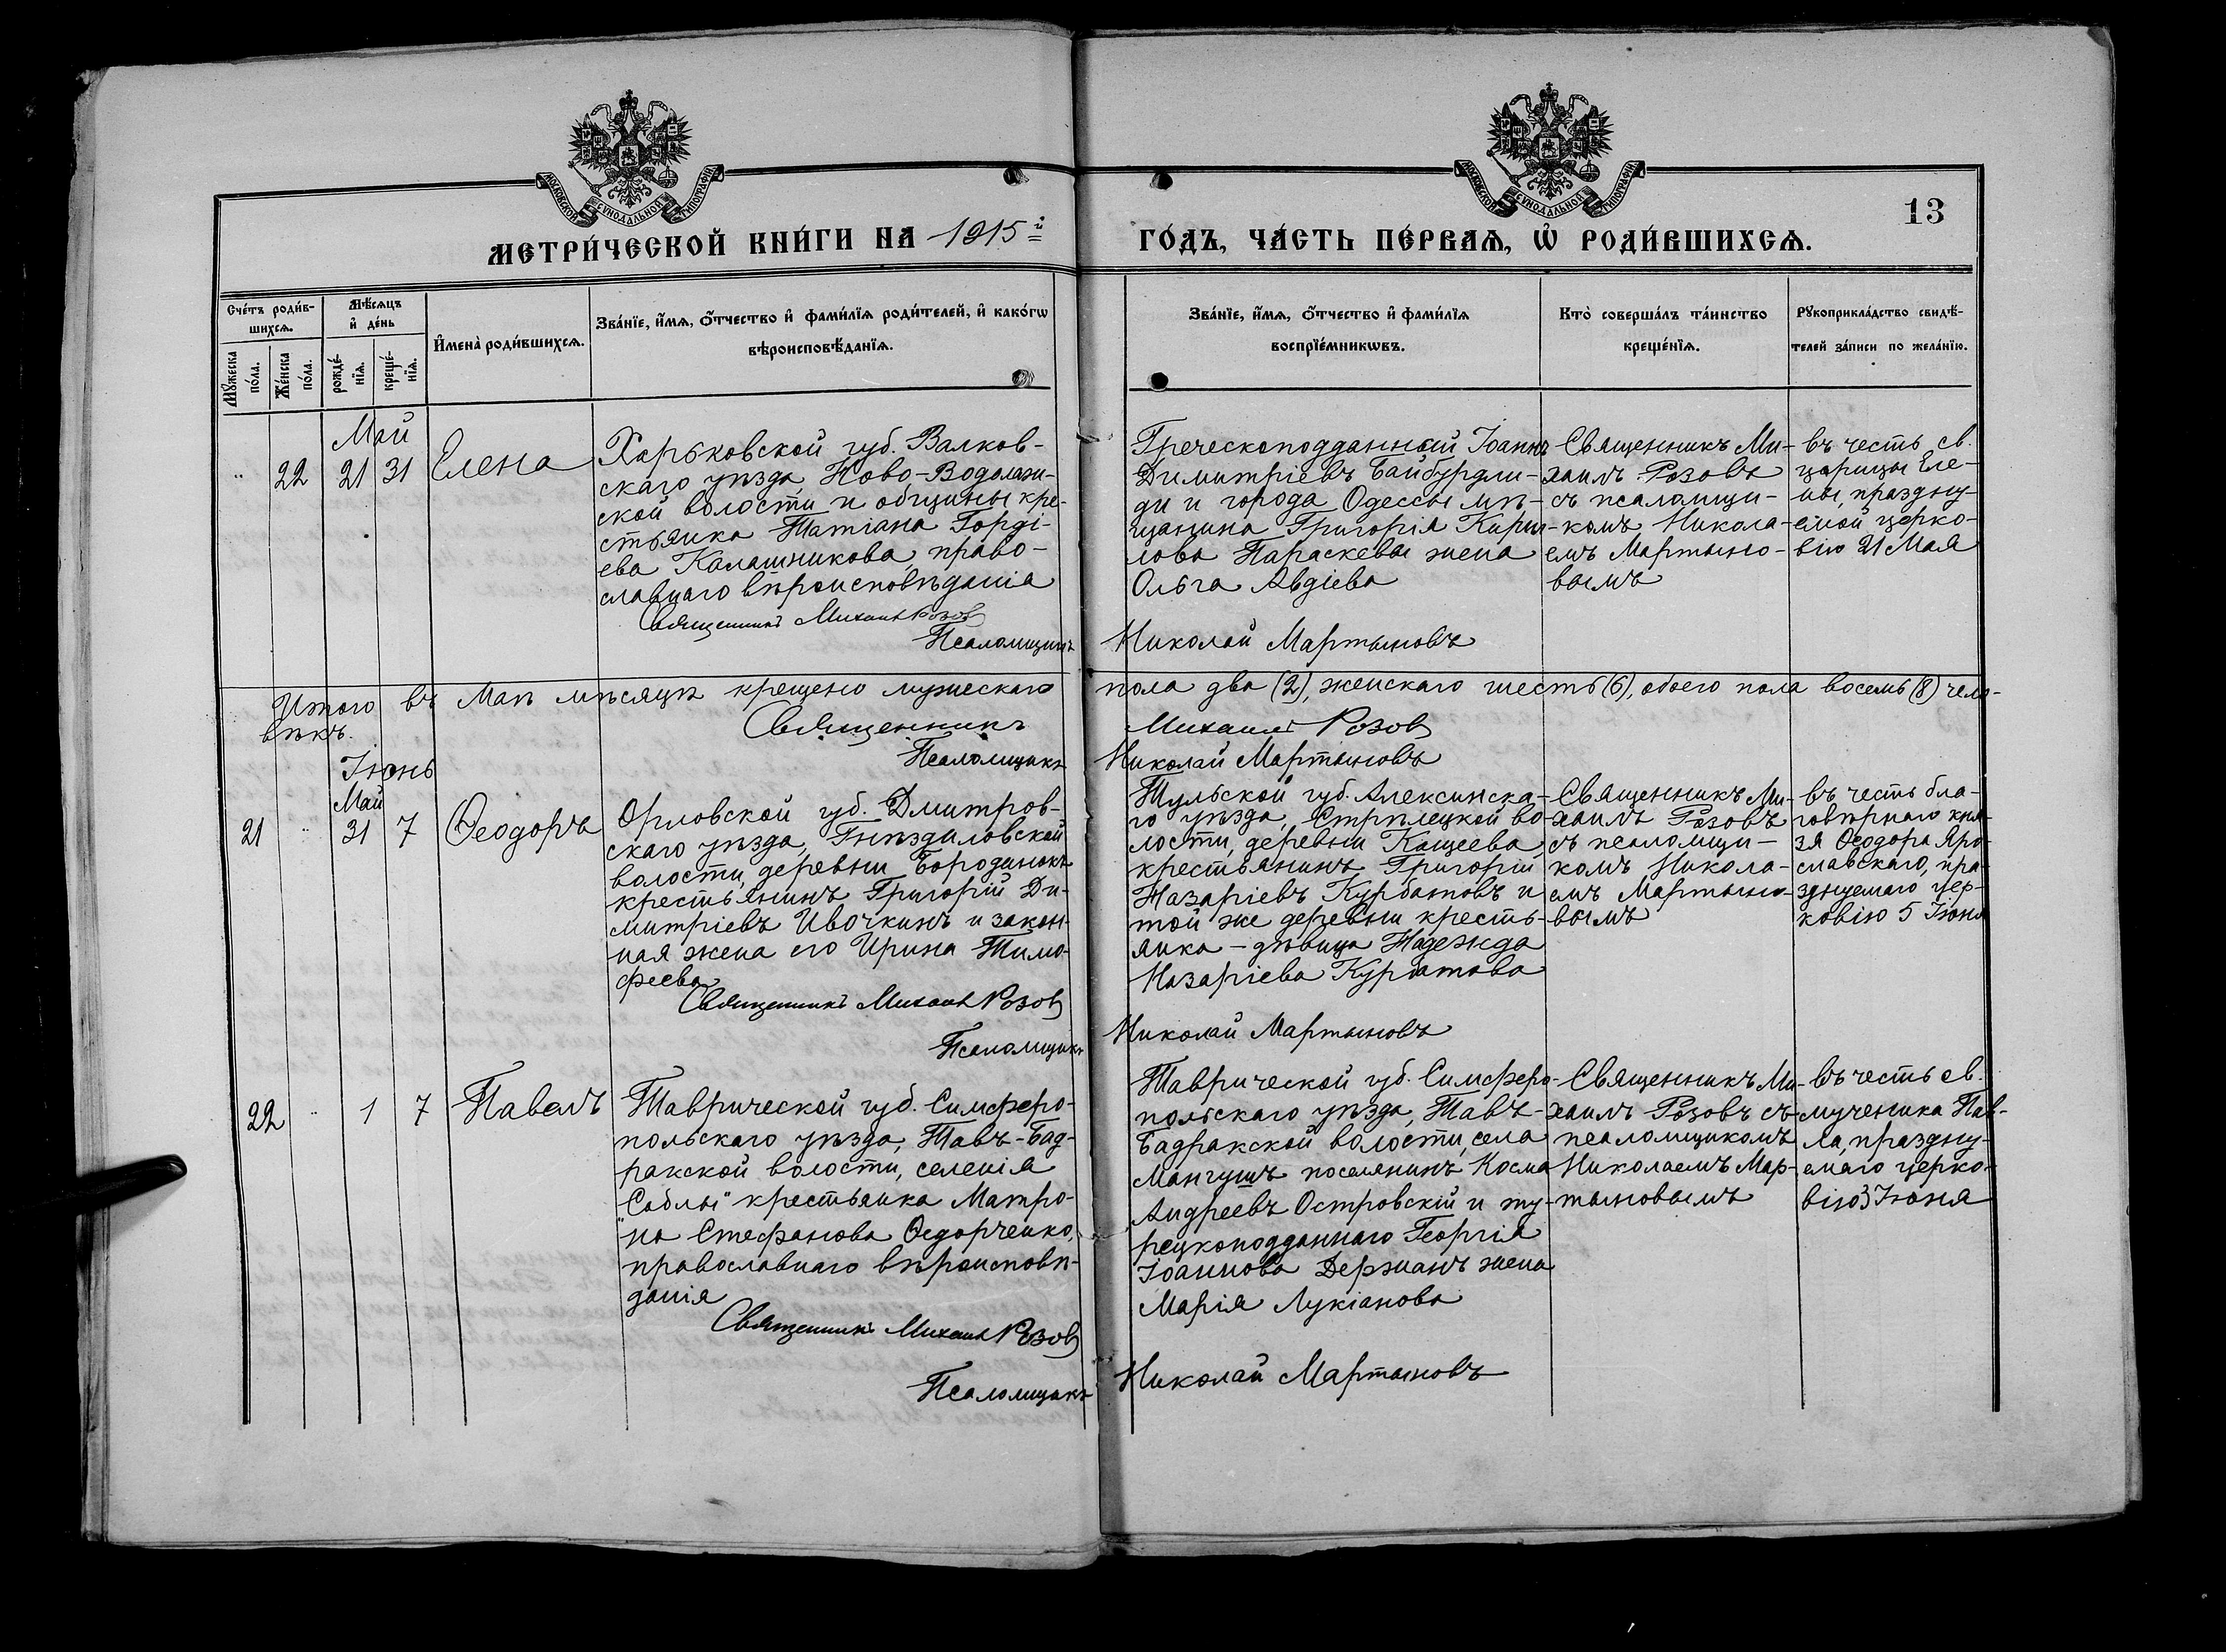 МОСКОВСКОЙ СУНОДАЛЬНОЙ ТИПОГРАФИИ
МОСКОВСКОЙ СУНОДАЛЬНОЙ ТИПОГРАФИИ
13
МЕТРИ́ЧЕСКОЙ КНИ́ГИ НА 1915й
ГО́ДЪ, ЧА́СТЬ ПЕ́РВАѦ, Ѡ҆ РОДИ́ВШИХСѦ.
Сче́тъ роди́в-
шихсѧ.
Мѣ́сѧцъ
и҆ де́нь
Мꙋ́жеска
по́ла.
Же́нска
по́ла.
рожде́-
нїѧ.
креще́-
нїѧ.
И҆мена̀ роди́вшихсѧ.
Зва́нїе, и҆́мѧ, ѻ҆́тчество и҆ фами́лїѧ роди́телей, и҆ како́гѡ
вѣроисповѣ́данїѧ.
Зва́нїе, и҆́мѧ, ѻ҆́тчество и҆ фами́лїѧ
воспрїе́мникѡвъ.
Кто̀ соверша́лъ та́инство
креще́нїѧ.
Рꙋкоприкла́дство свидѣ́-
телей за́писи по жела́нїю.
Май
" 22 21 31 Елена
Харьковской губ. Валков-
скаго уѣзда Ново-Водолаж-
ской волости и общины кре-
стьянка Татіана Горді-
ева Калашникова, право-
славнаго вѣроисповѣданія
Священникъ Михаилъ Розовъ
Псаломщикъ
Греческоподданный Іоаннъ
Димитріевъ Байбурдли-
ди и города Одессы мѣ-
щанина Григорія Кирил-
лова Параскевы жена
Ольга Авдіева
Николай Мартыновъ
Священникъ Ми-
хаилъ Розовъ
съ псаломщи-
комъ Никола-
емъ Мартыно-
вымъ
въ честь св.
царицы Еле-
ны, праздну-
емой церко-
вію 21 Мая
Итого въ Маѣ мѣсяцѣ крещено мужескаго пола два (2), женскаго шесть (6), обоего пола восемь (8) чело-
вѣкъ.
Священникъ Михаилъ Розовъ
Псаломщикъ Николай Мартыновъ
Іюнь
Май
21 " 31 7 Ѳеодоръ
Орловской губ. Дмитров-
скаго уѣзда, Гнѣздиловской
волости, деревни Бородинокъ
крестьянинъ Григорій Ди-
митріевъ Ивочкинъ и закон-
ная жена его Ирина Тимо-
феева
Священникъ Михаилъ Розовъ
Псаломщикъ
Тульской губ. Алексинска-
го уѣзда, Стрѣлецкой во-
лости, деревни Кащеева,
крестьянинъ Григорій
Назаріевъ Курбатовъ и
той же деревни кресть-
янка - дѣвица Надежда
Назаріева Курбатова
Николай Мартыновъ
Священникъ Ми-
хаилъ Розовъ
съ псаломщи-
комъ Никола-
емъ Мартыно-
вымъ
въ честь бла-
говѣрнаго кня-
зя Ѳеодора Яро-
славскаго, пра-
зднуемаго цер-
ковію 5 Іюня
22 " 1 7 Павелъ
Таврической губ. Симферо-
польскаго уѣзда, Тавъ-Бад-
ракской волости, селенія
"Саблы" крестьянка Матро-
на Стефанова Ѳедорченко,
православнаго вѣроисповѣ-
данія
Священникъ Михаилъ Розовъ
Псаломщикъ
Таврической губ. Симферо-
польскаго уѣзда, Тавъ-
Бадракской волости, села
Мангушъ поселянинъ Косма
Андреевъ Островскій и ту-
рецкоподданнаго Георгія
Іоаннова Держанъ жена
Марія Лукіанова
Николай Мартыновъ
Священникъ Ми-
хаилъ Розовъ съ
псаломщикомъ
Николаемъ Мар-
тыновымъ
въ честь св.
мученика Пав-
ла, праздну-
емаго церко-
вію 3 Іюня